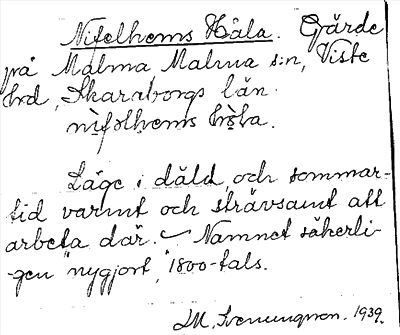 Nifelhems Håla. Gärde
på Malma, Malma s:n, Viste
hrd, Skaraborgs län.
nìfəlhems hòla.
Läge i dåld och sommar-
tid varmt och strävsamt att
arbeta där. Namnet säkerli-
gen "nygjort", 1800-tals.
M. Svenungsson. 1939.